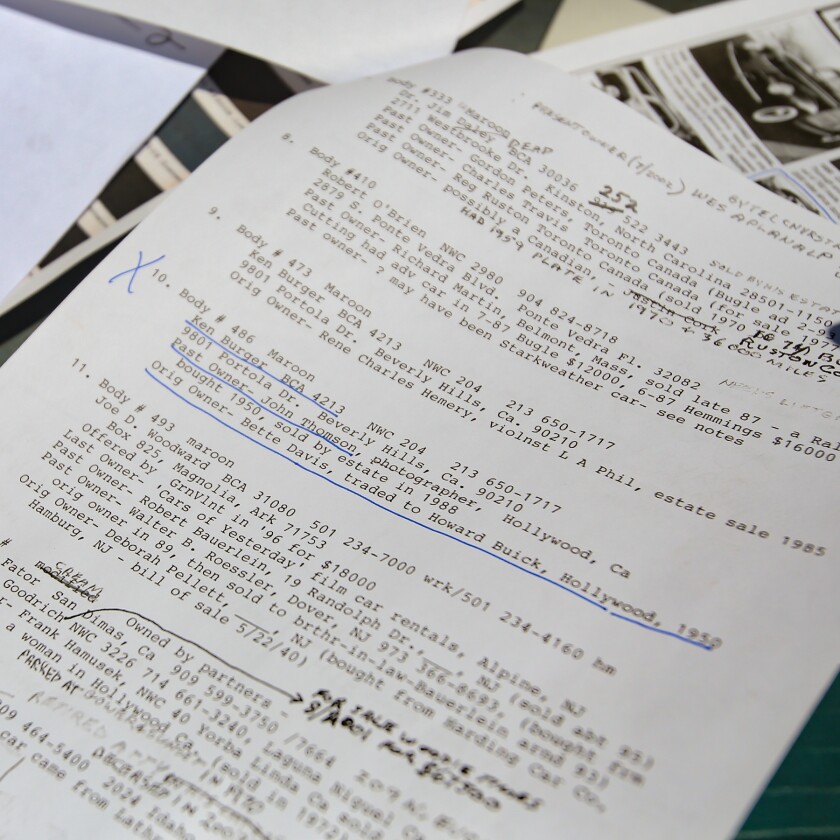 Body #333 Maroon DEAD
Dr. Jim Dabey BCA 30036
2711 Westbrooke Dr. Kinston, North Carolina 28501-11
Past Owner- Gordon Peters, Toronto Canada (Bugle ad 2-9
Past Owner- Charles Travis Toronto Canada (for sale 197
Past Owner- Reg Ruston Toronto Canada (sold 1970
Orig Owner- possibly a Canadian,- Justin Cork
PRESENT OWNER (4/2002) WES APLANALP
252
522 3443
SOLD BY HIS ESTA
HAD 1959 PLATE IN 1970 + 36000 MILES
RUSTON
8. Body #410
Robert O'Brien NWC 2980 904 824-8718
2879 S. Ponte Vedra Blvd. Ponte Vedra Fl. 32082
Past Owner- Richard Martin, Belmont, Mass, sold late 87 - a Ral
Cutting had adv car in 7-87 Bugle $12000, 6-87 Hemmings $16000
Past owner- ? may have been Starkweather car- see notes
9. Body # 473 Maroon
Ken Burger BCA 4213 NWC 204 213 650-1717
9801 Portola Dr. Beverly Hills, Ca. 90210
Orig Owner- Rene Charles Hemery, violnst L A Phil, estate sale 1985
X 10. Body # 486 Maroon
Ken Burger BCA 4213 NWC 204 213 650-1717
9801 Portola Dr. Beverly Hills, Ca. 90210
Past Owner- John Thomson, photographer, Hollywood, Ca
bought 1950, sold by estate in 1988
Orig Owner- Bette Davis, traded to Howard Buick, Hollywood, 1950
11. Body # 493 maroon
Joe D. Woodward BCA 31080 501 234-7000 wrk/501 234-4160 hm
Box 825, Magnolia, Ark 71753
Offered by GrnVlnt in '96 for $18000
Last Owner- 'Cars of Yesterday' film car rentals, Alpine, NJ
Past Owner- Robert Bauerlein, 19 Randolph Dr., NJ (sold abt 95)
Past Owner- Walter B. Roessler, Dover, NJ 973 366-6693, (bought frm
orig owner in 89, then sold to brthr-in-law-Bauerlein arnd 93)
Orig Owner- Deborah Pellett, NJ (bought from Harding Car Co,
Hamburg, NJ - bill of sale 5/22/40)
#
CREAM
Fator Owned by partners -
San Dimas, Ca 909 599-3750 /7664
Goodrich NWC 3226 714 661-3240, Laguna Niguel Ca
r- Frank Hamusek, NWC 40 Yorba Linda Ca sold
a woman in Hollywood Ca. (sold in 1972)
FOR SALE WOODIE TIMES
5/2001 FOR $67500
09 464-5400 2024 Idaho
car came from Lath